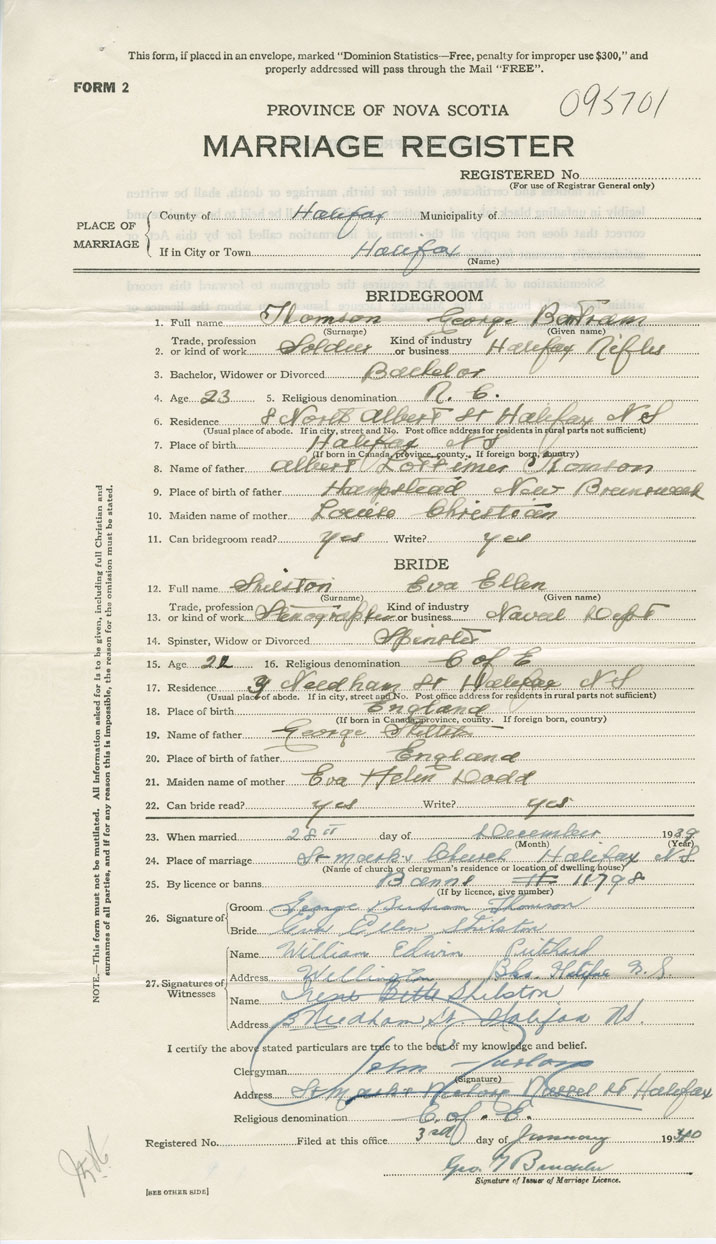 This form, if placed in an envelope, marked "Dominion Statistics—Free, penalty for improper use $300," and
properly addressed will pass through the Mail "FREE".
FORM 2
095701
PROVINCE OF NOVA SCOTIA
MARRIAGE REGISTER
REGISTERED No.
(For use of Registrar General only)
PLACE OF MARRIAGE
County of Halifax Municipality of
If in City or Town Halifax
(Name)
BRIDEGROOM
1. Full name Thomson George Bertram
(Surname) (Given name)
2. Trade, profession or kind of work Soldier Kind of industry or business Halifax Rifles
3. Bachelor, Widower or Divorced Bachelor
4. Age 23 5. Religious denomination R. C.
6. Residence 8 North Albert St Halifax N S
(Usual place of abode. If in city, street and No. Post office address for residents in rural parts not sufficient)
7. Place of birth Halifax N S
(If born in Canada, province, county. If foreign born, country)
8. Name of father Albert Lortimer Thomson
9. Place of birth of father Hampstead New Brunswick
10. Maiden name of mother Louise Christian
11. Can bridegroom read? yes Write? yes
BRIDE
12. Full name Shilston Eva Ellen
(Surname) (Given name)
13. Trade, profession or kind of work Stenographer Kind of industry or business Naval Dept
14. Spinster, Widow or Divorced Spinster
15. Age 21 16. Religious denomination C of E
17. Residence Needham St Halifax N S
(Usual place of abode. If in city, street and No. Post office address for residents in rural parts not sufficient)
18. Place of birth England
(If born in Canada, province, county. If foreign born, country)
19. Name of father George
20. Place of birth of father England
21. Maiden name of mother Eva Helen Dodd
22. Can bride read? yes Write? yes
23. When married 28th day of December 1939
(Month) (Year)
24. Place of marriage St Mark's Church Halifax N S
(Name of church or clergyman's residence or location of dwelling house)
25. By licence or banns Banns # 11798
(If by licence, give number)
26. Signature of
Groom George Bertram Thomson
Bride Eva Ellen Shilston
27. Signatures of Witnesses
Name William Edwin
Address Wellington Bks. Halifax N.S.
Name Irene Shilston
Address Needham St. Halifax NS.
I certify the above stated particulars are true to the best of my knowledge and belief.
Clergyman John
(Signature)
Address St Mark's Rectory Russel St Halifax
Religious denomination C. of. E.
Registered No. Filed at this office 3rd day of January 1940
Geo.
Signature of Issuer of Marriage Licence.
[SEE OTHER SIDE]
NOTE.—This form must not be mutilated. All Information asked for is to be given, including full Christian and
surnames of all parties, and if for any reason this is impossible, the reason for the omission must be stated.